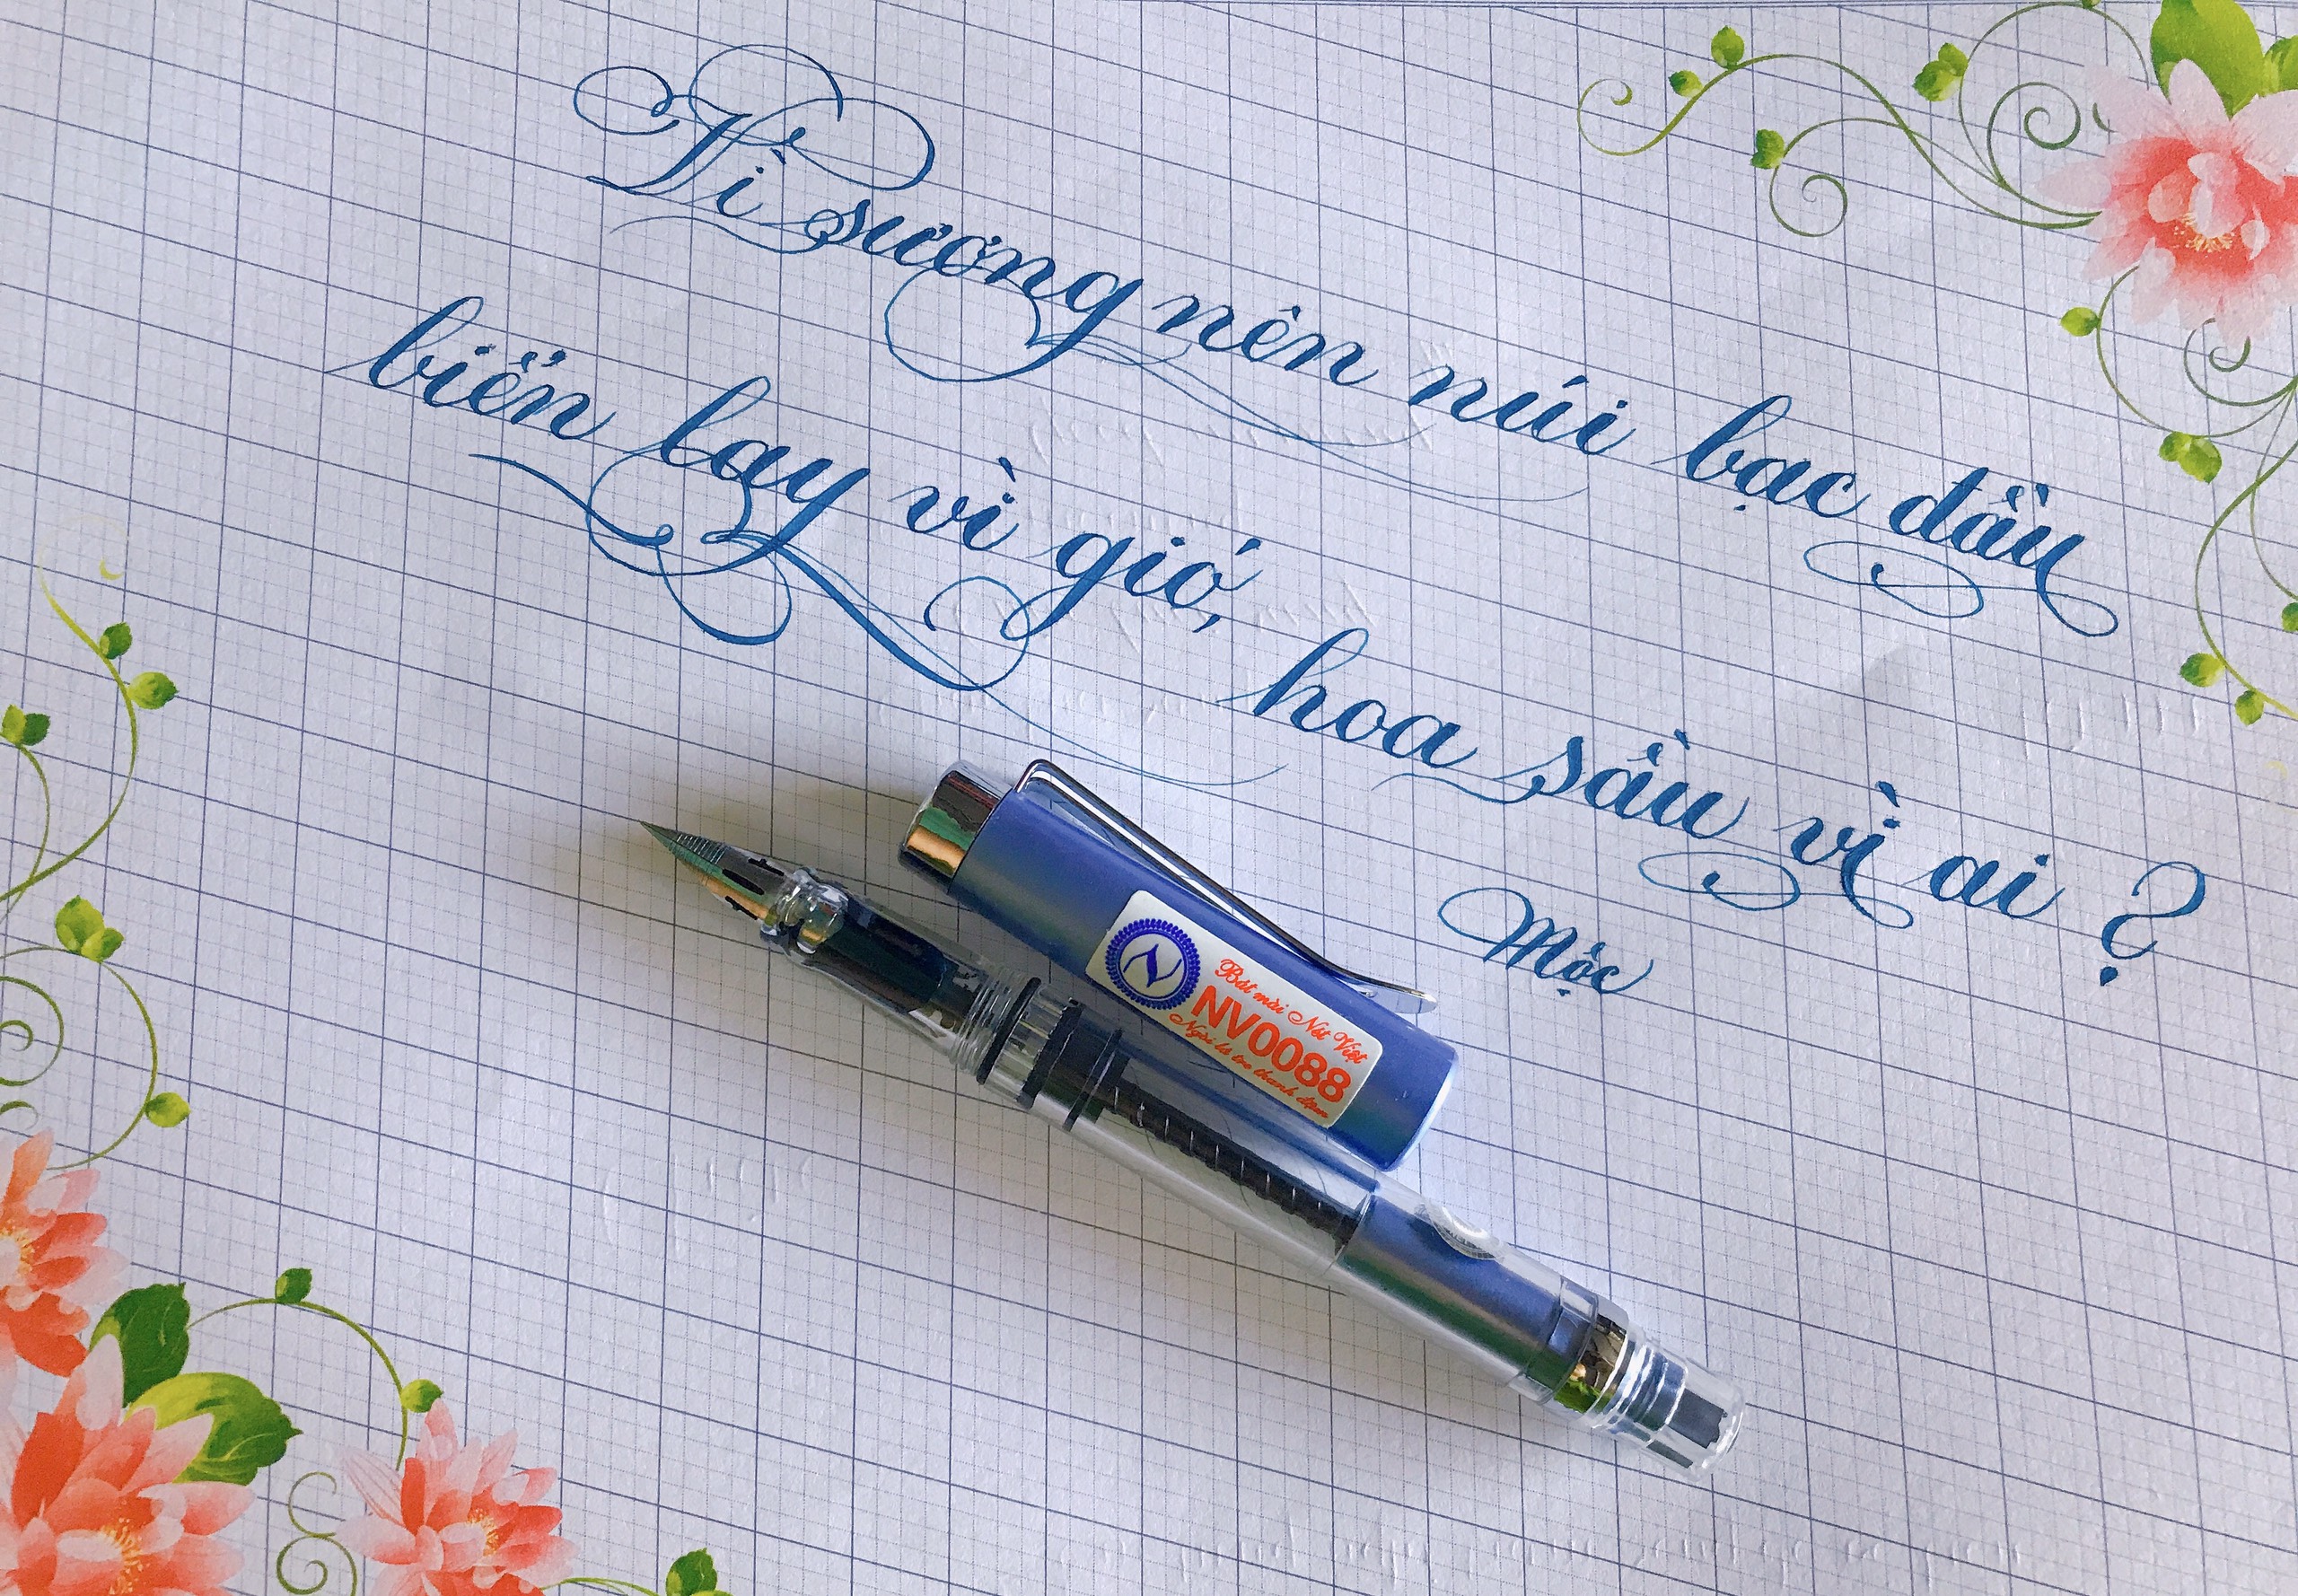 Vì sương nên núi bạc đầu
biển lay vì gió, hoa sầu vì ai ?
Mộc
Bút mài Nét Việt
NV0088
Ngòi lá tre thanh đậm